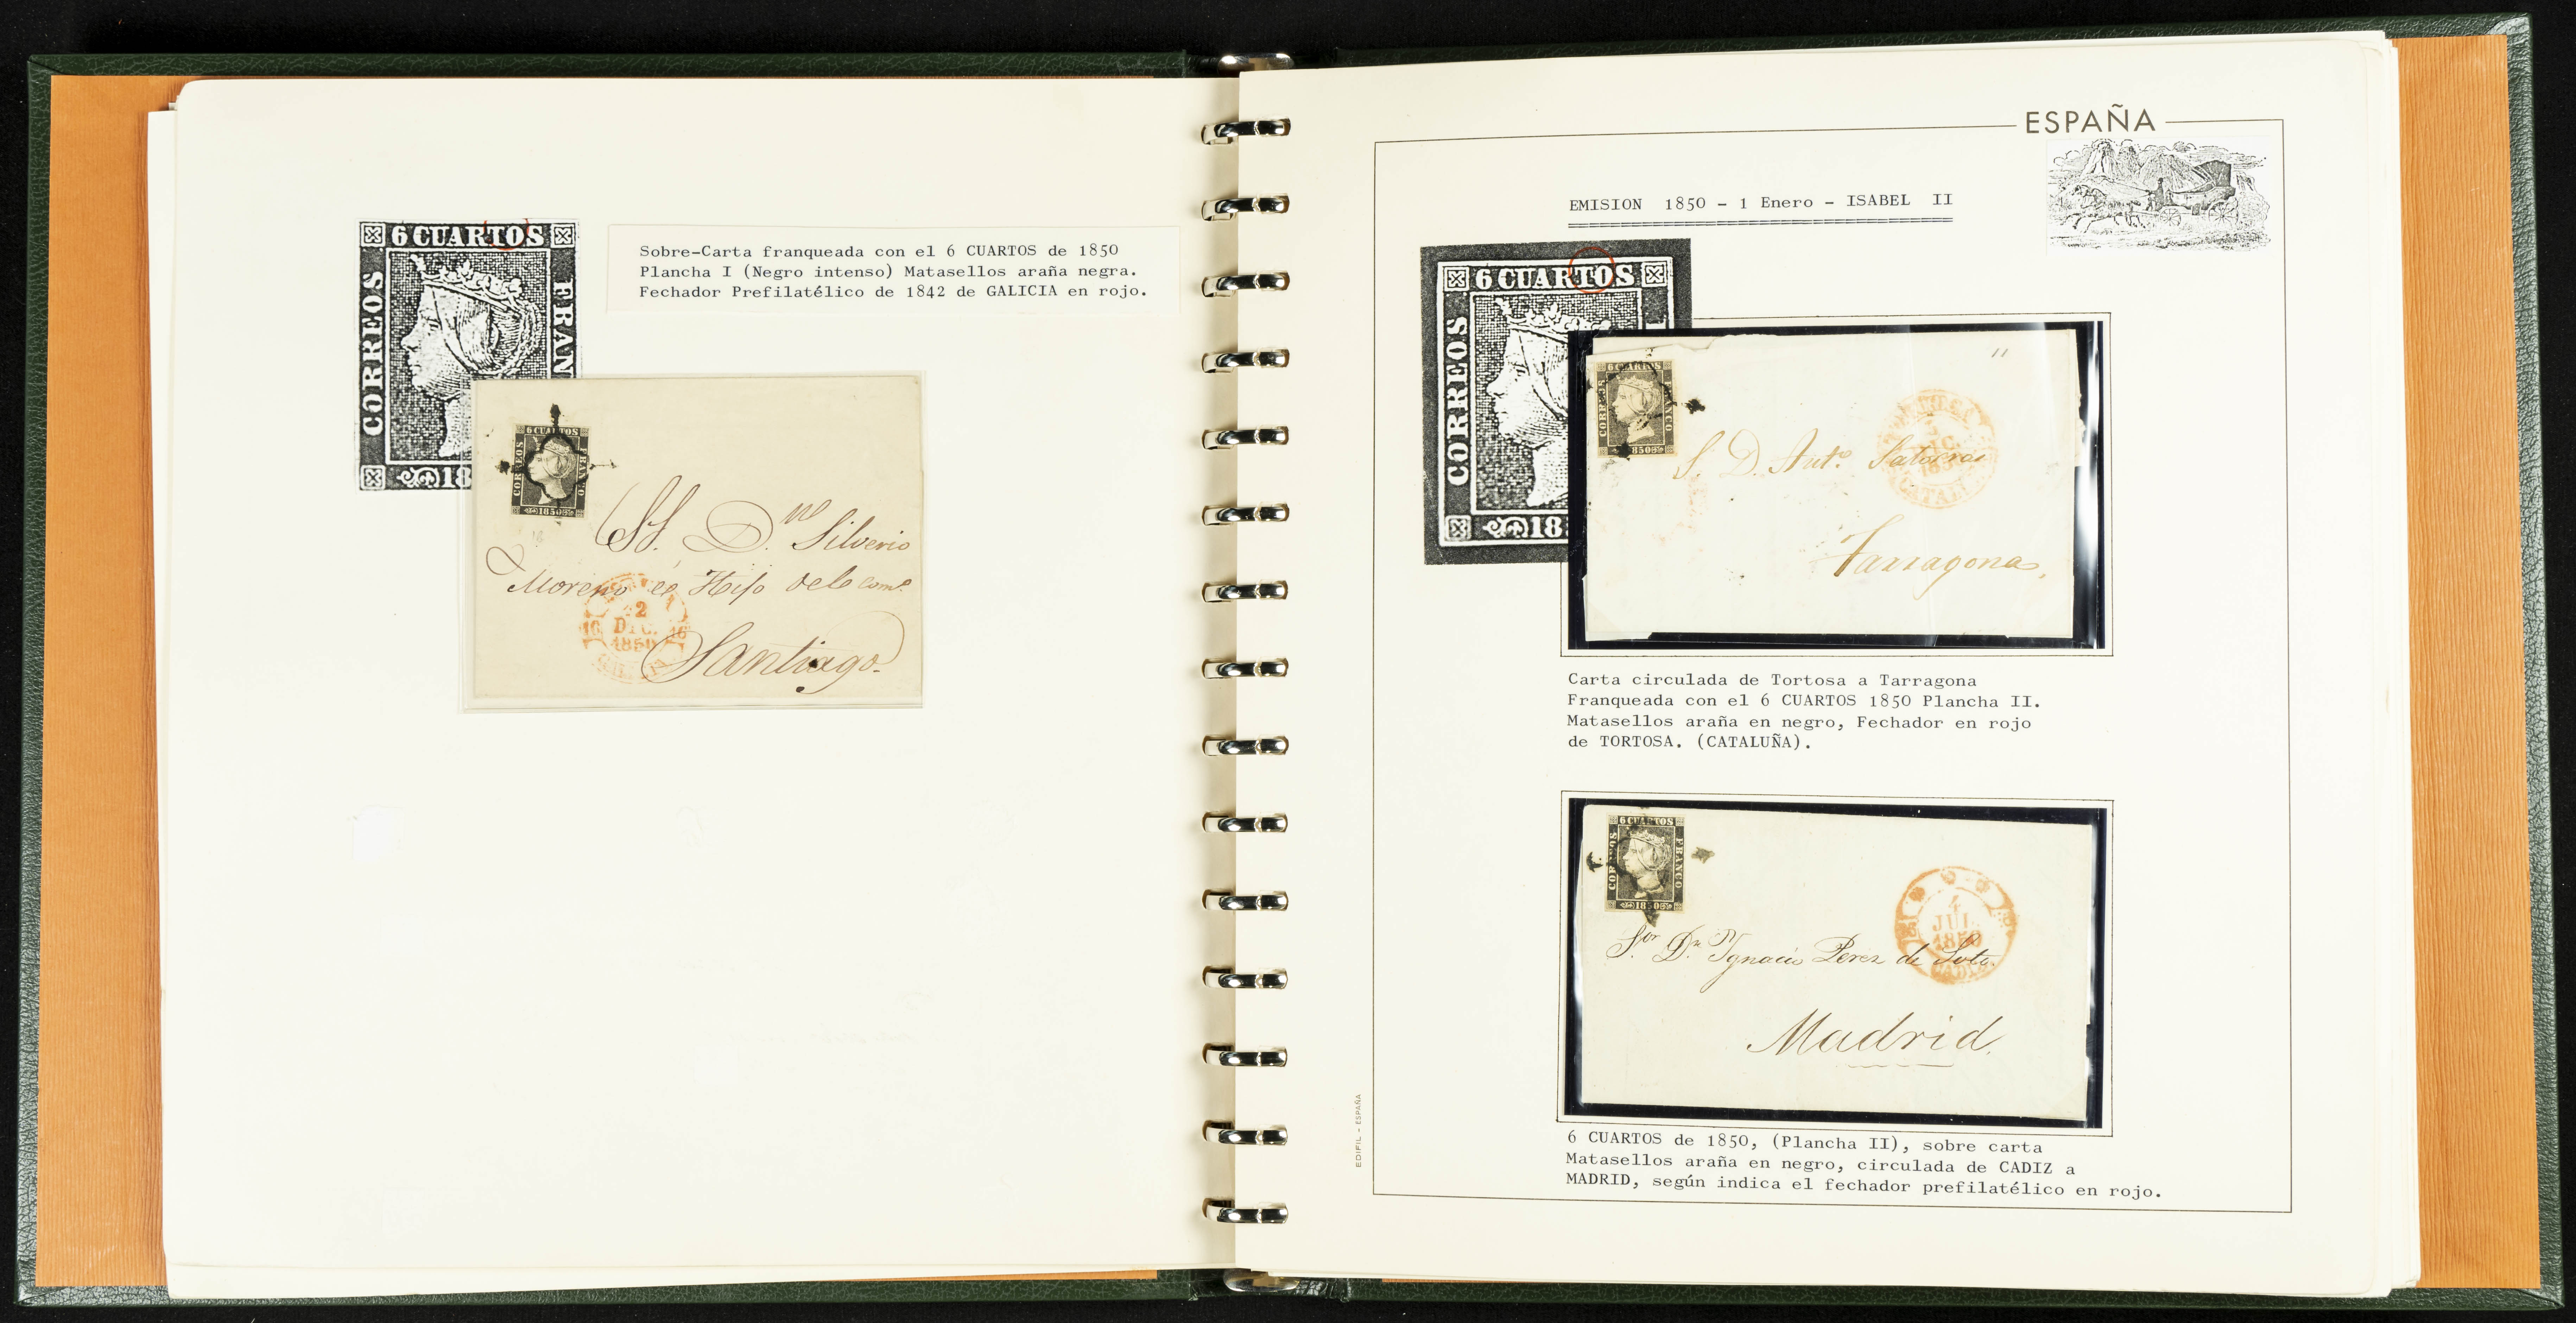 6 CUARTOS
CORREOS
FRAN
18
Sobre-Carta franqueada con el 6 CUARTOS de 1850
Plancha I (Negro intenso) Matasellos araña negra.
Fechador Prefilatélico de 1842 de GALICIA en rojo.
6 CUARTOS
CORREOS
FRANCO
1850
SS. D.
Silverio
Moreno é Hijo del com.
Santiago.
DIC.
1850
16
16
ESPAÑA
EMISION 1850 - 1 Enero - ISABEL II
6 CUARTOS
CORREOS
18
6 CUARTOS
FRANCO
1850
11
S. D. Anto.
Tarragona,
Carta circulada de Tortosa a Tarragona
Franqueada con el 6 CUARTOS 1850 Plancha II.
Matasellos araña en negro, Fechador en rojo
de TORTOSA. (CATALUÑA).
6 CUARTOS
FRANCO
1850
4
JUL.
1850
CADIZ
Sor. Dn. Ygnacio Perez de Soto.
Madrid.
6 CUARTOS de 1850, (Plancha II), sobre carta
Matasellos araña en negro, circulada de CADIZ a
MADRID, según indica el fechador prefilatélico en rojo.
EDIFIL - ESPAÑA